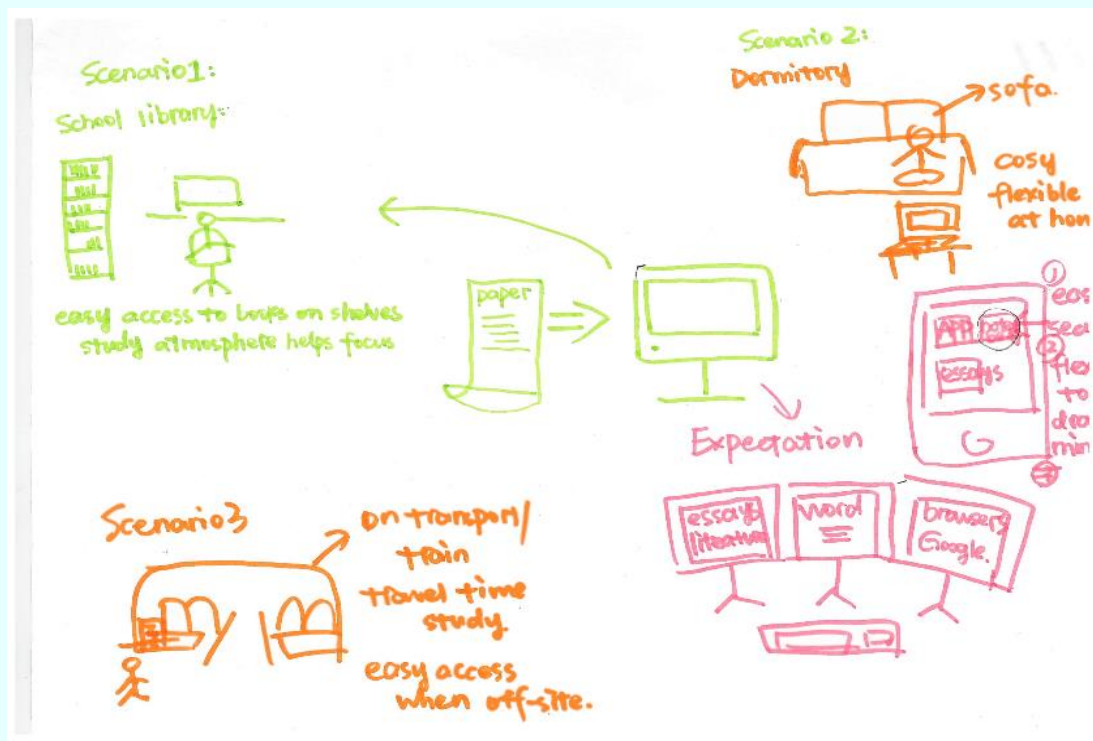 Scenario1:
School library:
easy access to books on shelves
study atmosphere helps focus
paper
Scenario 2:
Dormitory
sofa.
cosy
flexible
at hom
①
eas
sea
②
flex
to
dra
min
APP
essays
Expectation
essays
literature
word
browsers
Google.
Scenario3
on transport/
train
travel time
study
easy access
when off-site.